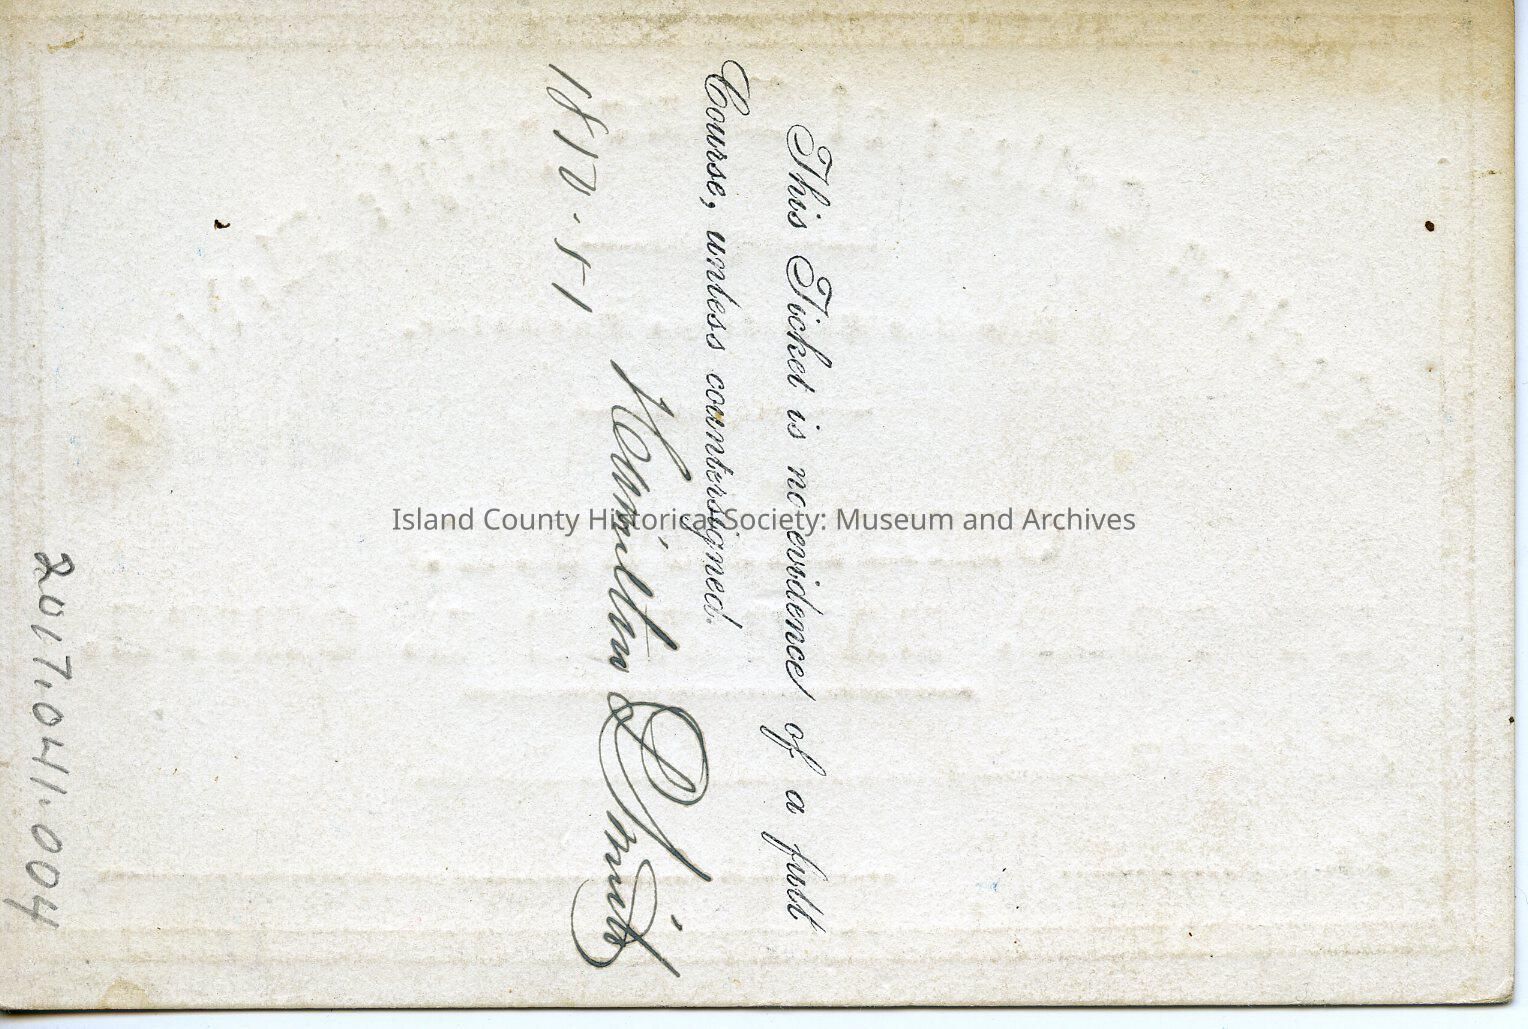 This Ticket is no evidence of a full
Course, unless countersigned.
Hamilton P. Smith
1850-51
2017.041.004
Island County Historical Society: Museum and Archives